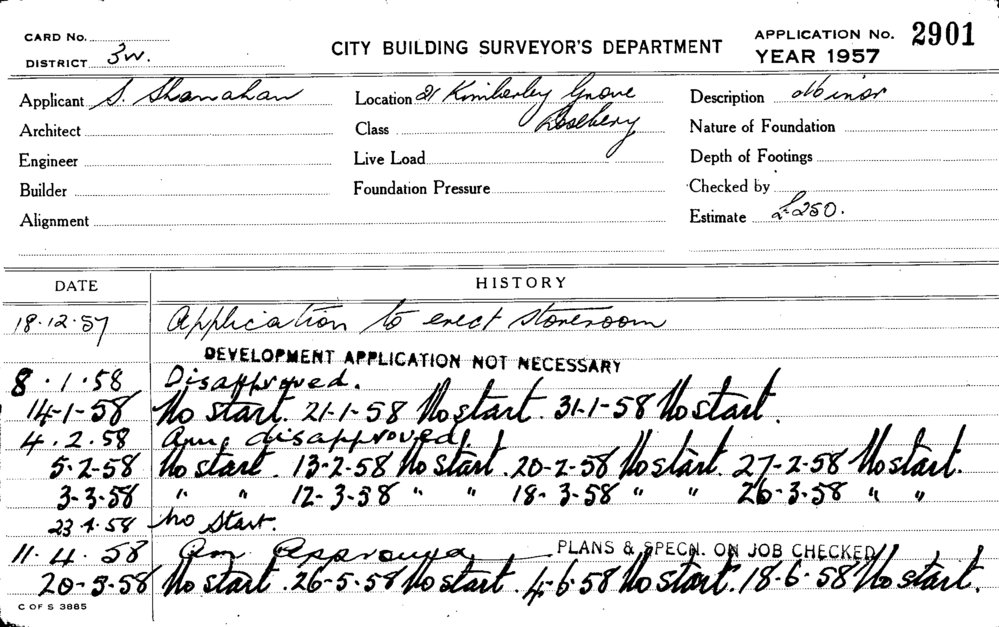 CARD No.
DISTRICT 3W.
CITY BUILDING SURVEYOR'S DEPARTMENT
APPLICATION No. 2901
YEAR 1957
Applicant S. Shanahan
Location 21 Kimberley Grove
Rosebery
Description Minor
Architect
Class
Nature of Foundation
Engineer
Live Load
Depth of Footings
Builder
Foundation Pressure
Checked by
Alignment
Estimate £250.
DATE HISTORY
18.12.57 Application to erect storeroom
DEVELOPMENT APPLICATION NOT NECESSARY
8.1.58 Disapproved.
14-1-58 No start. 21-1-58 No start. 31-1-58 No start.
4.2.58 disapproved.
5-2-58 No start. 13-2-58 No start. 20-2-58 No start. 27-2-58 No start.
3-3-58 " " 12-3-58 " " 18-3-58 " " 26-3-58 " "
23.4.58 No Start.
11.4.58 Am Approved PLANS & SPECN. ON JOB CHECKED
20-5-58 No start. 26-5-58 No start. 4-6-58 No start. 18-6-58 No start.
C OF S 3885